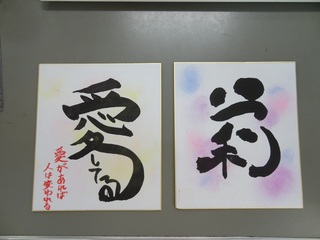 愛してる
愛があれば
人は変われる